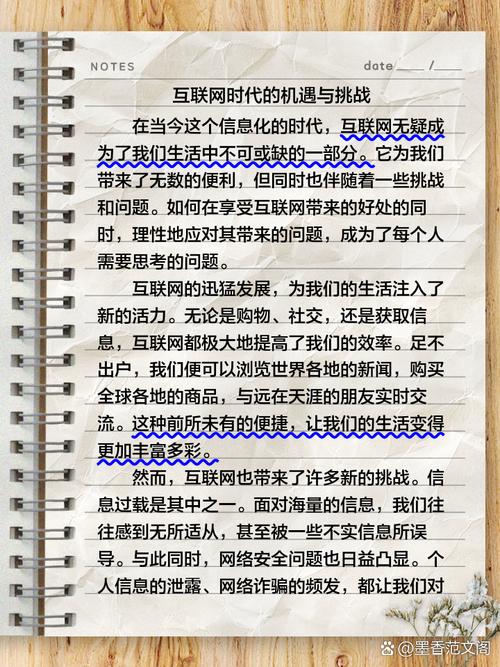 NOTES
date ____ / ____
互联网时代的机遇与挑战
在当今这个信息化的时代，互联网无疑成
为了我们生活中不可或缺的一部分。它为我们
带来了无数的便利，但同时也伴随着一些挑战
和问题。如何在享受互联网带来的好处的同
时，理性地应对其带来的问题，成为了每个人
需要思考的问题。
互联网的迅猛发展，为我们的生活注入了
新的活力。无论是购物、社交，还是获取信
息，互联网都极大地提高了我们的效率。足不
出户，我们便可以浏览世界各地的新闻，购买
全球各地的商品，与远在天涯的朋友实时交
流。这种前所未有的便捷，让我们的生活变得
更加丰富多彩。
然而，互联网也带来了许多新的挑战。信
息过载是其中之一。面对海量的信息，我们往
往感到无所适从，甚至被一些不实信息所误
导。与此同时，网络安全问题也日益凸显。个
人信息的泄露、网络诈骗的频发，都让我们对
@墨香范文阁